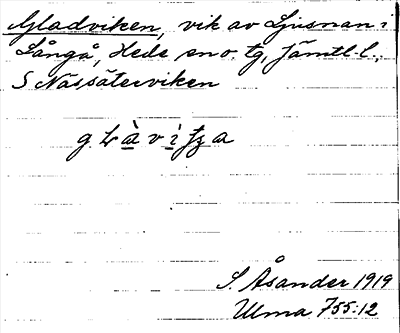 Gladviken, vik av Ljusnan i
Långå, Hede sn o. tg, Jämtl. l.,
S Nässäterviken
S. Åsander 1919
Ulma 755:12